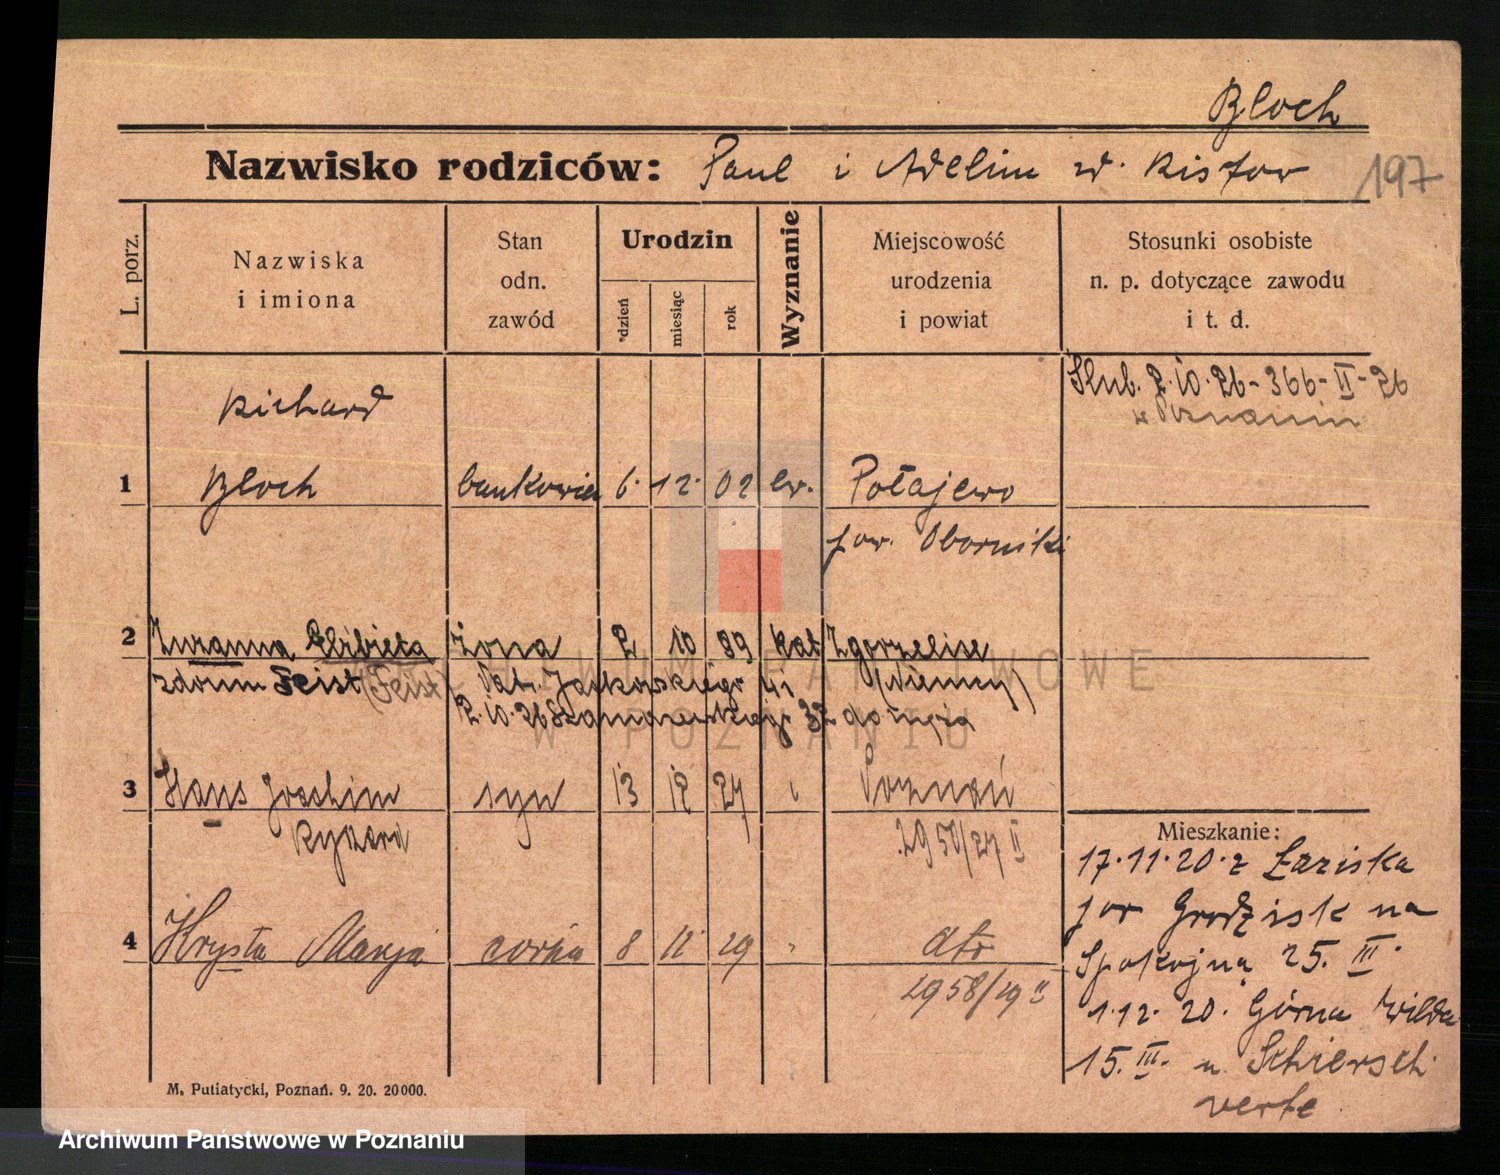 Bloch
Nazwisko rodziców: Paul i Adelim z d. Kistow
197
L. porz.
Nazwiska
i imiona
Stan
odn.
zawód
Urodzin
dzień
miesiąc
rok
Wyznanie
Miejscowość
urodzenia
i powiat
Stosunki osobiste
n. p. dotyczące zawodu
i t. d.
Ślub. 2.10.26-366-II-26
w Poznaniu
Richard
1 Bloch bankowiec 6. 12. 02 ew. Połajewo
pow. Oborniki
2 Zuzanna Elżbieta żona 2 10 89 kat Zgorzelise
zdomu Feist (Feist) Jackowskiego 41 (Niemcy)
2.10.26 Szamarzewskiego 32 do męża
3 Hans Joachim syn 13 12 27 Poznań
Ryszard 2950/27 II
4 Krysta Marja córka 8 12 29 dto
2958/29 II
Mieszkanie:
17.11.20. z Łaziska
pow Grodzisk na
Spokojną 25. III.
1.12. 20. Górna Wilda
15. III. u Schiersch
verte
M. Putiatycki, Poznań. 9. 20. 20000.
ARCHIWUM PAŃSTWOWE
W POZNANIU
Archiwum Państwowe w Poznaniu